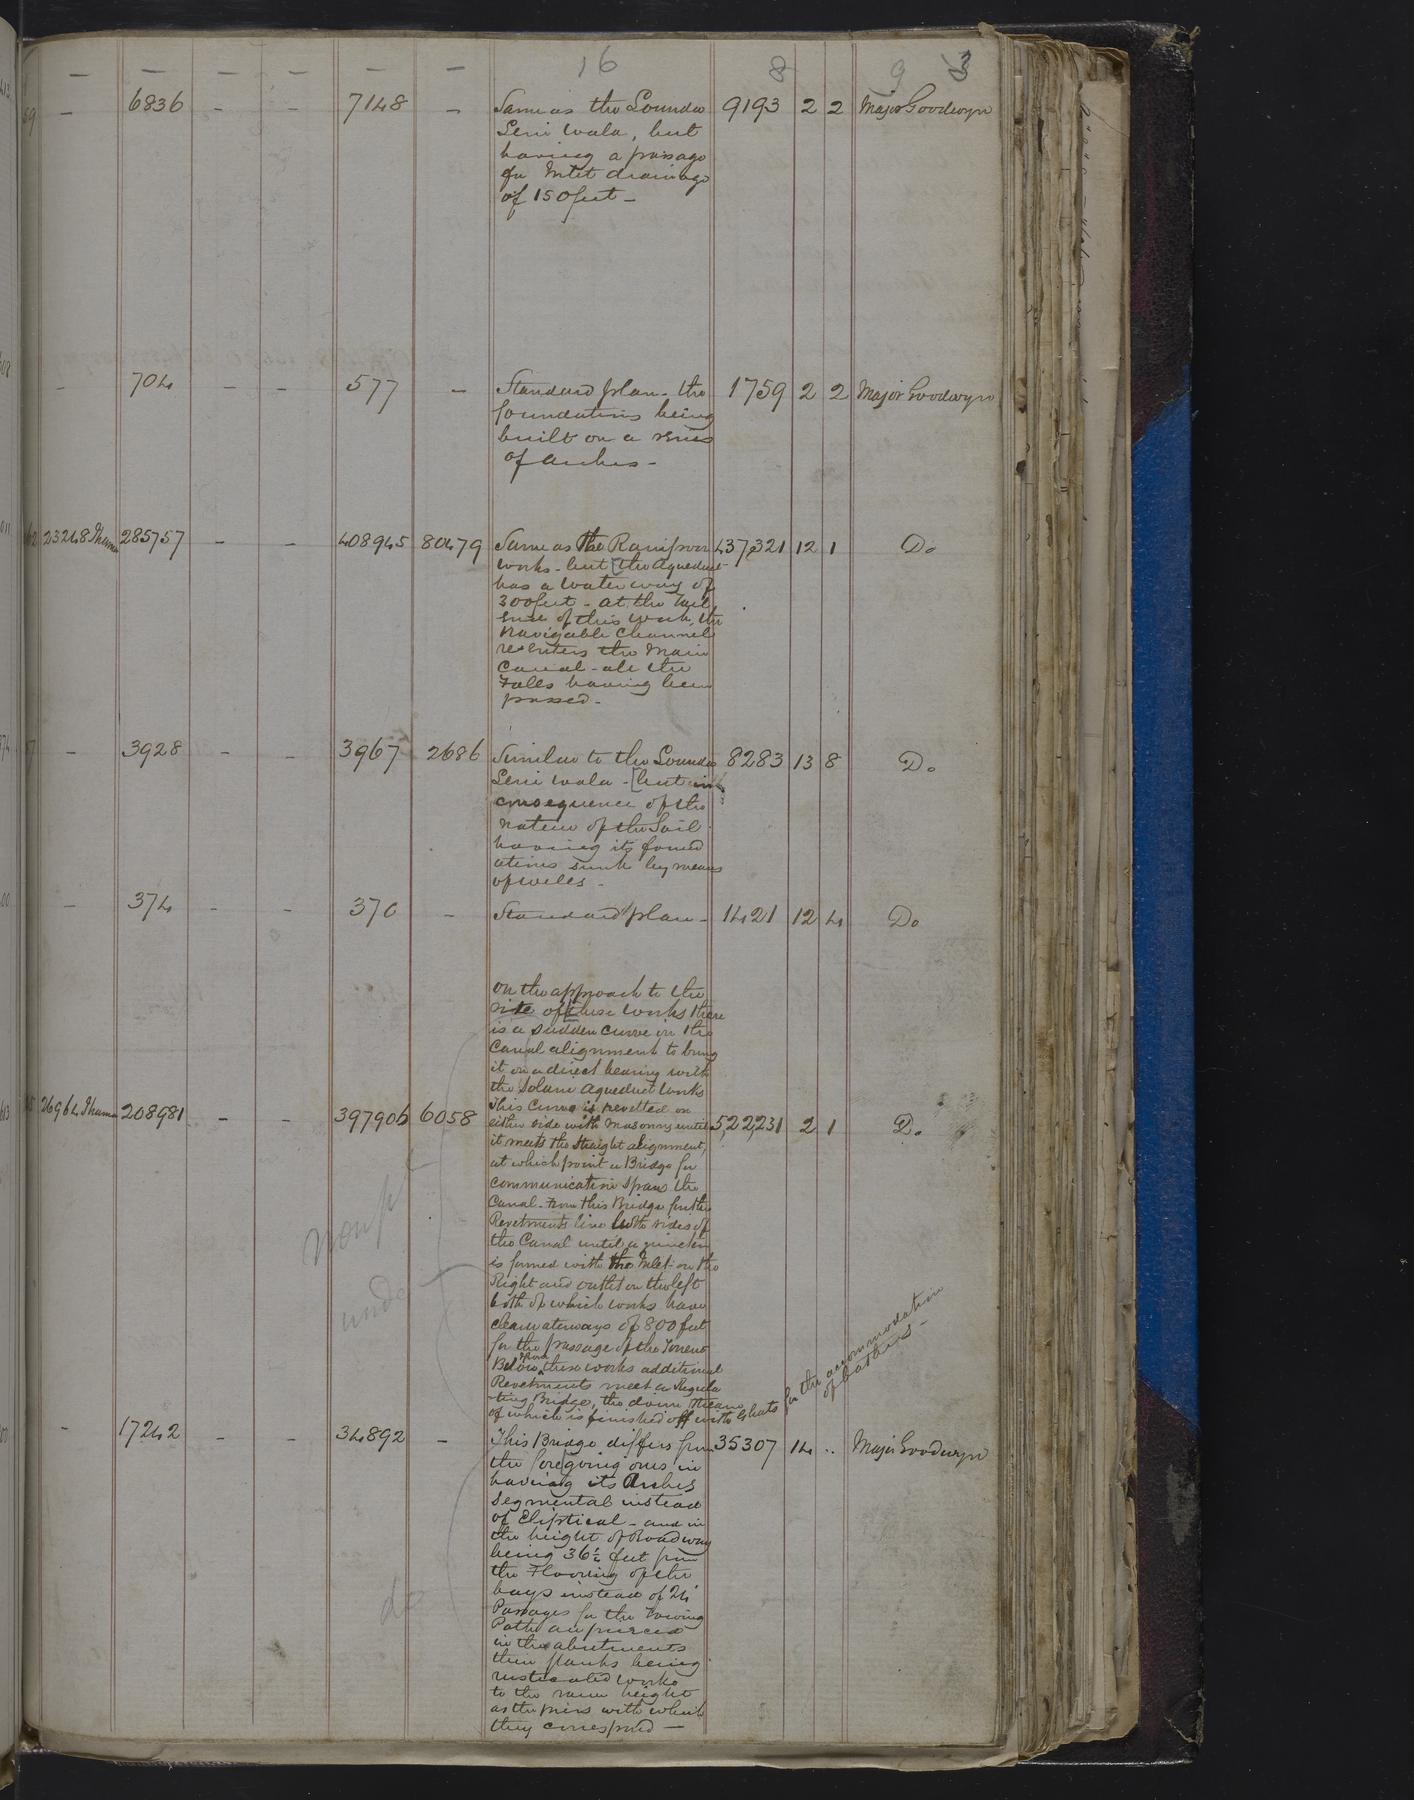 16 8 9 3
— 6836 — — 7148 — Same as the Lounda 9193 2 2 Major Goodwyn
Seri wala, but
having a passage
for Inlet drainage
of 150 feet —
— 704 — — 577 — Standard plan - the 1759 2 2 Major Goodwyn
foundations being
built on a series
of arches —
23248 285757 — — 408945 80479 Same as the Ranipoor 437,321 12 1 Do
works - but [the Aqueduct
has a water way of
300 feet - at the Tail
of this work, the
Navigable Channel
re-enters the Main
Canal - all the
Falls having been
passed —
— 3928 — — 3967 2686 Similar to the Lounda 8283 13 8 Do
Seri wala - [but in
consequence of the
nature of the Soil
having its found
ations sunk by means
of wells —
— 374 — — 370 — Standard plan — 1421 12 4 Do
On the approach to the
site of [these works there
is a sudden curve in the
Canal alignment to bring
it on a direct bearing with
the Solani Aqueduct works
This Curve is revetted on
26964 208981 — — 397906 6058 either side with Masonry until 5,22,231 2 1 Do
it meets the straight alignment,
at which point a Bridge for
communication spans the
Canal - From this Bridge further
Revetments line both sides of
the Canal until a junction
is formed with the Inlet on the
Right and outlet on the left
both of which works have
clear waterways of 800 feet
for the passage of the Torrent
Below these works additional
Revetments meet a Regula
ting Bridge, the down stream
of which is finished off with Ghats for the accommodation
of bathers —
— 17242 — — 34892 — This Bridge differs from 35307 14 .. Major Goodwyn
the fore[going ones in
having its Arches
Segmental instead
of Eliptical - and in
the height of Roadway
being 36½ feet from
the Flooring of the
bays instead of 24
Passages for the Towing
Path are pierced
in the abutments
their flanks being
rusticated works
to the same height
as the piers with which
they correspond —
under
do